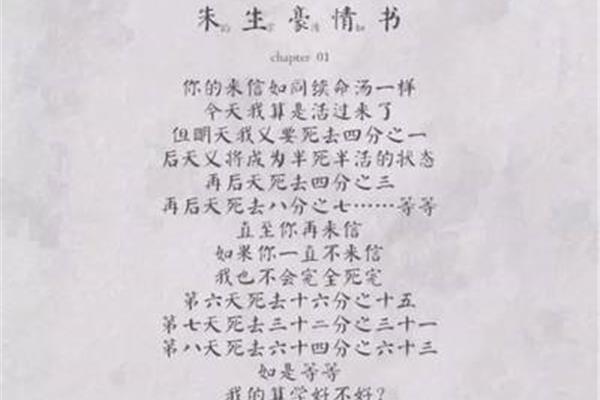 朱生豪情书
chapter 01
你的来信如同续命汤一样
今天我算是活过来了
但明天我又要死去四分之一
后天又将成为半死半活的状态
再后天死去四分之三
再后天死去八分之七……等等
直至你再来信
如果你一直不来信
我也不会完全死完
第六天死去十六分之十五
第七天死去三十二分之三十一
第八天死去六十四分之六十三
如是等等
我的算学好不好?